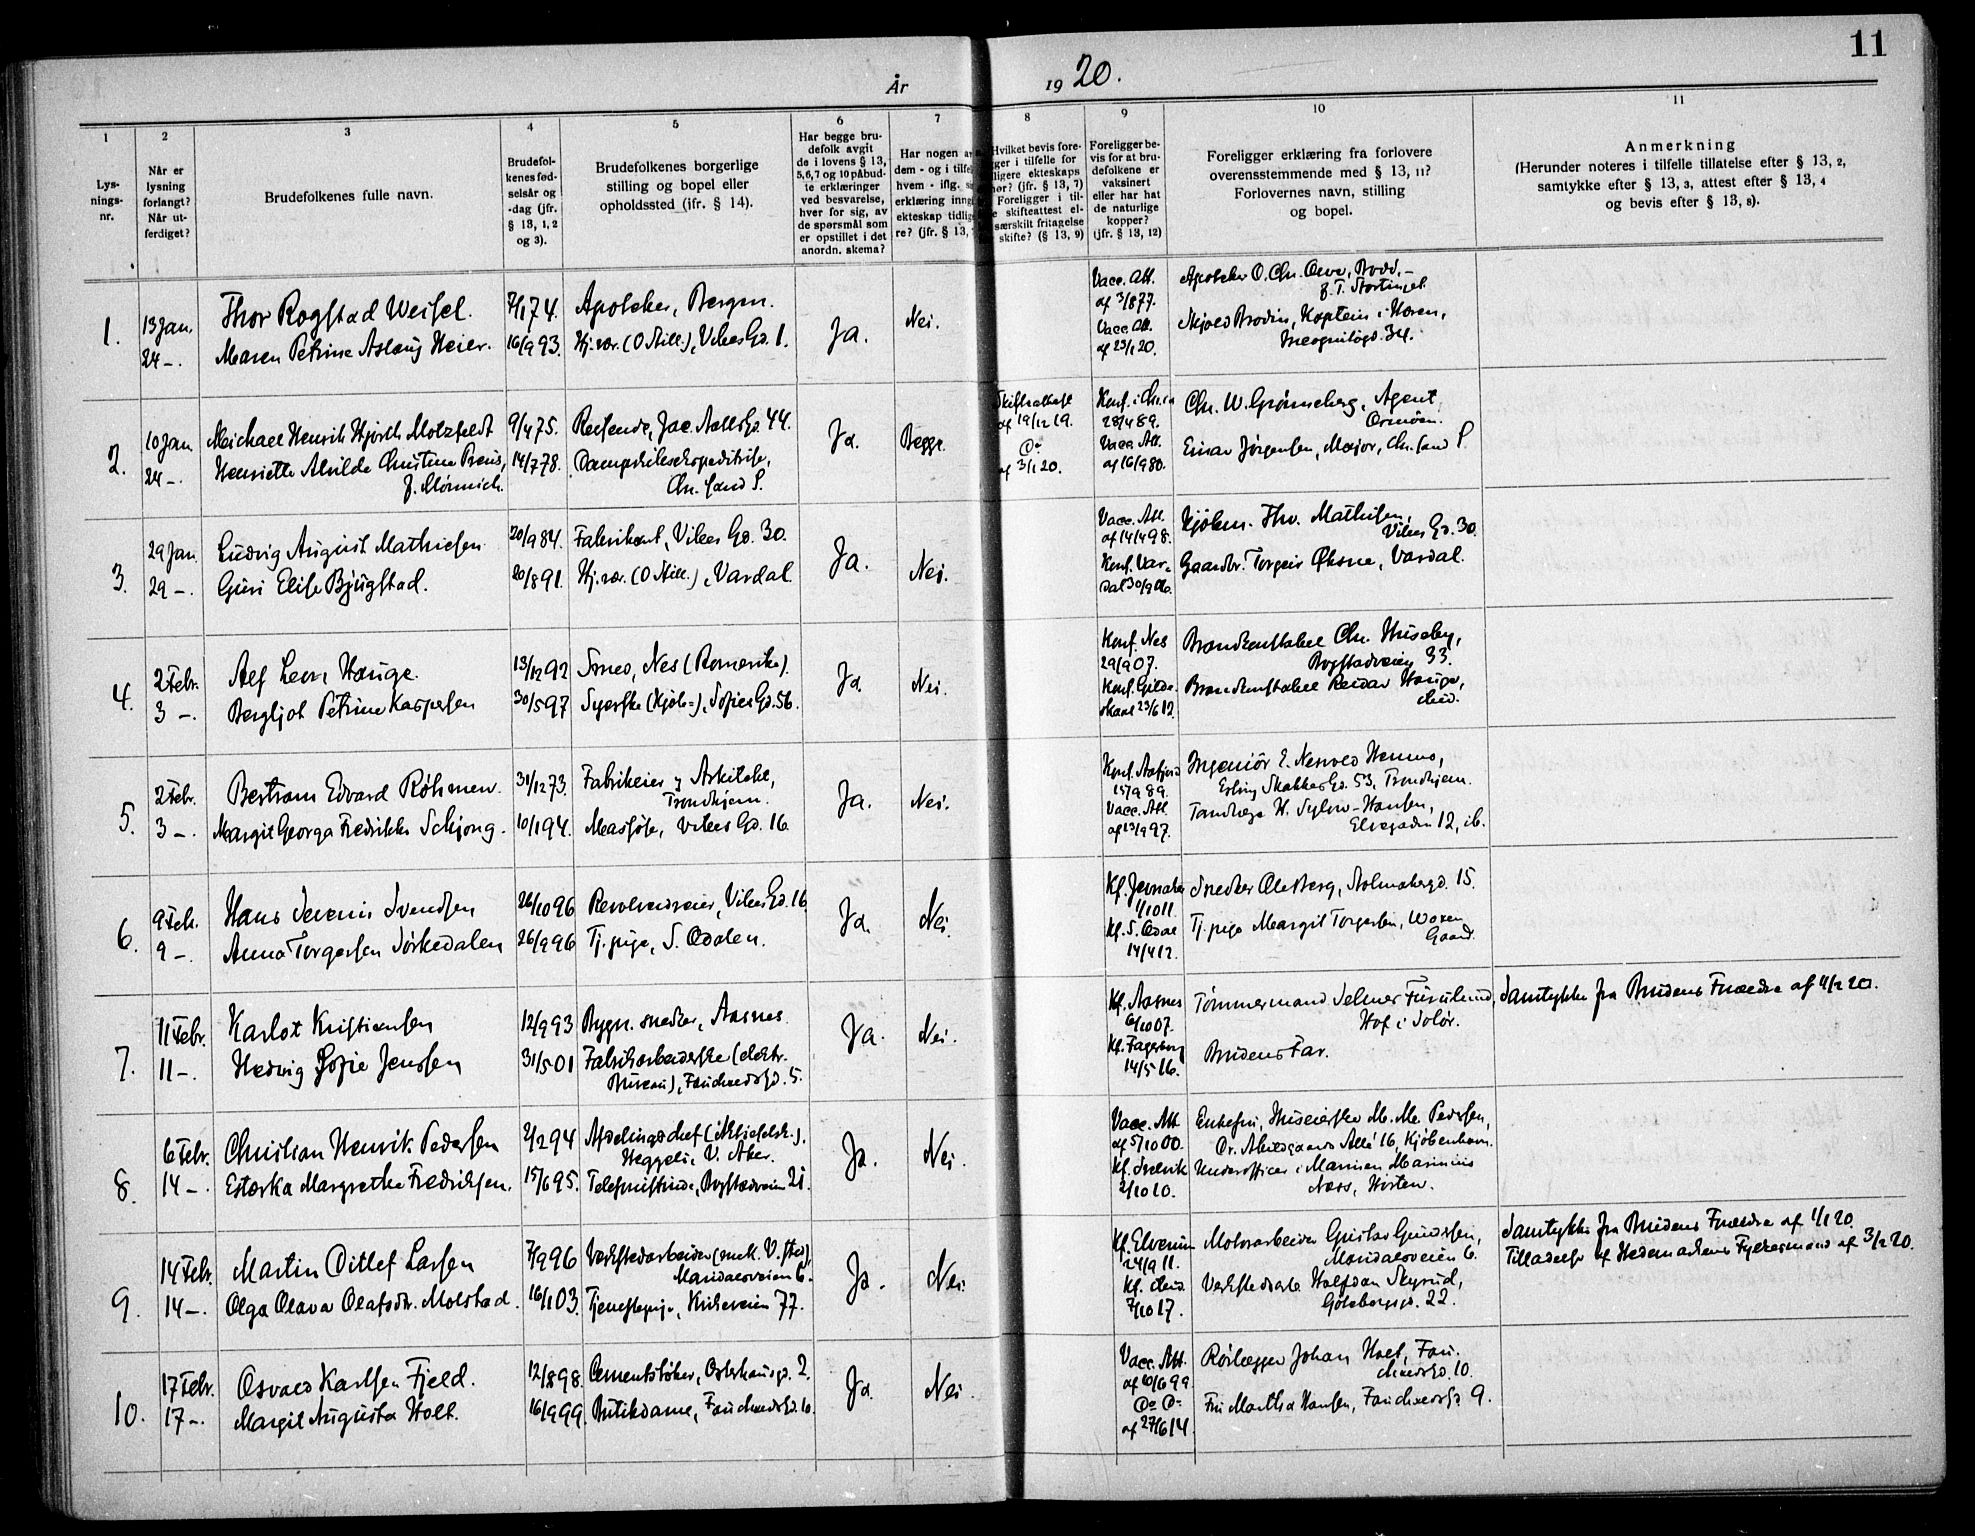 11
År 1920.
1
2
3
4
5
6
7
8
9
10
11
Lys-
nings-
nr.
Når er
lysning
forlangt?
Når ut-
ferdiget?
Brudefolkenes fulle navn.
Brudefol-
kenes fød-
selsår og
-dag (jfr.
§ 13, 1, 2
og 3).
Brudefolkenes borgerlige
stilling og bopel eller
opholdssted (jfr. § 14).
Har begge bru-
defolk avgit
de i lovens § 13,
5, 6, 7 og 10 påbud-
te erklæringer
ved besvarelse,
hver for sig, av
de spørsmål som
er opstillet i det
anordn. skema?
Har nogen
dem - og i tilfel
hvem - iflg.
erklæring inng
ekteskap tidlig
re? (jfr. § 13,
Hvilket bevis fore-
gger i tilfelle for
ligere ekteskaps
hør? (jfr. § 13, 7)
Foreligger i til-
e skifteattest el-
særskilt fritagelse
skifte? (§ 13, 9)
Foreligger be-
vis for at bru-
defolkene er
vaksinert
eller har hat
de naturlige
kopper?
(jfr. § 13, 12)
Foreligger erklæring fra forlovere
overensstemmende med § 13, 11?
Forlovernes navn, stilling
og bopel.
Anmerkning
(Herunder noteres i tilfelle tillatelse efter § 13, 2,
samtykke efter § 13, 3, attest efter § 13, 4
og bevis efter § 13, 8).
1.
13 Jan.
24 –.
Thor Rogstad Weisel.
Maren Petrine Aslaug Heier.
7/1 74.
16/9 93.
Apoteker, Bergen.
Hj.vær. (O Still.), Vibes Gd. 1.
Ja.
Nei.
Vacc. Att.
af 3/8 77.
Vacc. Att.
af 23/1 20.
Apoteker O. Chr.
f. T. Stortinget.
Kaptein i Hæren,
Incognitogd. 34.
2.
10 Jan.
24 –.
Michael Henrik Hjorth Motzfeldt
Henriette Alvilde Christine Preus,
f. Mönnich.
9/4 75.
14/7 78.
Reisende, Jac. Aalls Gd. 44.
Chr.sand S.
Ja.
Begge.
Skifteattest
af 19/12 19.
Do
af 3/1 20.
Konf. i Chr.ia
28/4 89.
Vacc. Att.
af 16/9 80.
Chr. W. Grönneberg, Agent,
Ormöen.
Einar Jørgensen, Major, Chr.sand S.
3.
29 Jan.
29 –.
Ludvig August Mathiesen
Guri Elise Bjugstad.
20/9 84.
20/8 91.
Fabrikant, Vibes Gd. 30.
Hj.vær. (O Still.), Vardal.
Ja.
Nei.
Vacc. Att.
af 14/4 98.
Konf. Var-
dal 30/9 06.
Kjöbm. Thv. Mathisen,
Vibes Gd. 30.
Gaardbr. Torgeir Öksne, Vardal.
4.
2 Febr.
3 –.
Alf Levi Hauge.
Bergljot Petrine Kaspersen
13/12 92
30/5 97
Smed, Nes (Romerike).
Syerske (Hjöb=), Sofies Gd. 56.
Ja.
Nei.
Konf. Nes
29/9 07.
Konf. Gilde-
skaal 23/6 12.
Brandkonstabel Chr. Huseby,
Bogstadveien 33.
Brandkonstabel Reidar Hauge,
ibid.
5.
2 Febr.
3 –.
Bertram Edvard Röhmen.
Margit Georga Fredrikke Schjong.
31/12 73.
10/1 94.
Fabrikeier og Arkitekt,
Trondhjem.
Massöse, Vibes Gd. 16.
Ja.
Nei.
Konf. Aafjord
15/9 89.
Vacc. Att.
af 13/9 97.
Ingeniör E. Nesvold Hemmo,
Erling Skakkes Gd. 53, Trondhjem.
Tandlæge H. Sylow-Hansen,
Elvegaden 12, ib.
6.
9 Febr.
9 –.
Hans Severin Svendsen
Anna Torgersen Sörkedalen
26/10 96
26/9 96
Revolverdreier, Vibes Gd. 16.
Tj.pige, S. Odalen.
Ja.
Nei.
Kf. Jevnaker
1/10 11.
Kf. S. Odal
14/4 12.
Snedker Ole Berg, Holmabogd. 15.
Tj.pige Margit Torgersen, Woxen
Gaard.
7.
11 Febr.
11 –.
Karlot Kristiansen
Hedvig Sofie Jenssen
12/9 93
31/5 01
Bygn. snedker, Aasnes.
Fabrikarbeiderske (elektr.
Bureau), Fauchalds Gd. 5.
Ja.
Nei.
Kf. Aasnes
6/10 07.
Kf. Fagerborg
14/5 16.
Tömmermand Selmer Furulund,
Hof i Solör.
Brudens Far.
Samtykke fra Brudens Forældre af 11/2 20.
8.
6 Febr.
14 –.
Christian Henrik Pedersen
Estorka Margrethe Fredriksen.
2/2 94
15/6 95.
Afdelingschef (i Aktieselsk.),
Heggeli, V. Aker.
Telefonistinde, Bogstadveien 21.
Ja.
Nei.
Vacc. Att.
af 5/10 00.
Kf. Svelvik
2/10 10.
Enkefru, Huseierske M. M. Pedersen,
Dr. Abildgaards Allé 16, Kjöbenhavn.
Underofficer i Marinen Marinius
Næss, Horten.
9.
14 Febr.
14 –.
Martin Ditlef Larsen
Olga Olava Olafsdtr. Molstad.
7/9 96
16/1 03.
Verkstedarbeider (mek. V.sted),
Maridalsveien 6.
Tjenestepige, Kirkeveien 77.
Ja.
Nei.
Kf. Elverum
24/9 11.
Kf. ibid.
7/10 17.
Motorarbeider Gustav Gundersen,
Maridalsveien 6.
Verkstedarb. Halfdan Skyrud,
Göteborggd. 22.
Samtykke fra Brudens Forældre af 1/1 20.
Tilladelse af Hedemarkens Fylkesmand af 3/2 20.
10.
17 Febr.
17 –.
Osvald Karlsen Fjeld.
Margit Augusta Holt.
12/8 98.
16/9 99.
Cementstöber, Osterhausgd. 2.
Butikdame, Fauchalds Gd. 10.
Ja.
Nei.
Vacc. Att.
af 10/6 99
Do Do
af 27/6 14.
Rörlægger Johan Holt, Fau-
chaldsgd. 10.
Fru Martha Hansen, Fauchalds Gd 9.